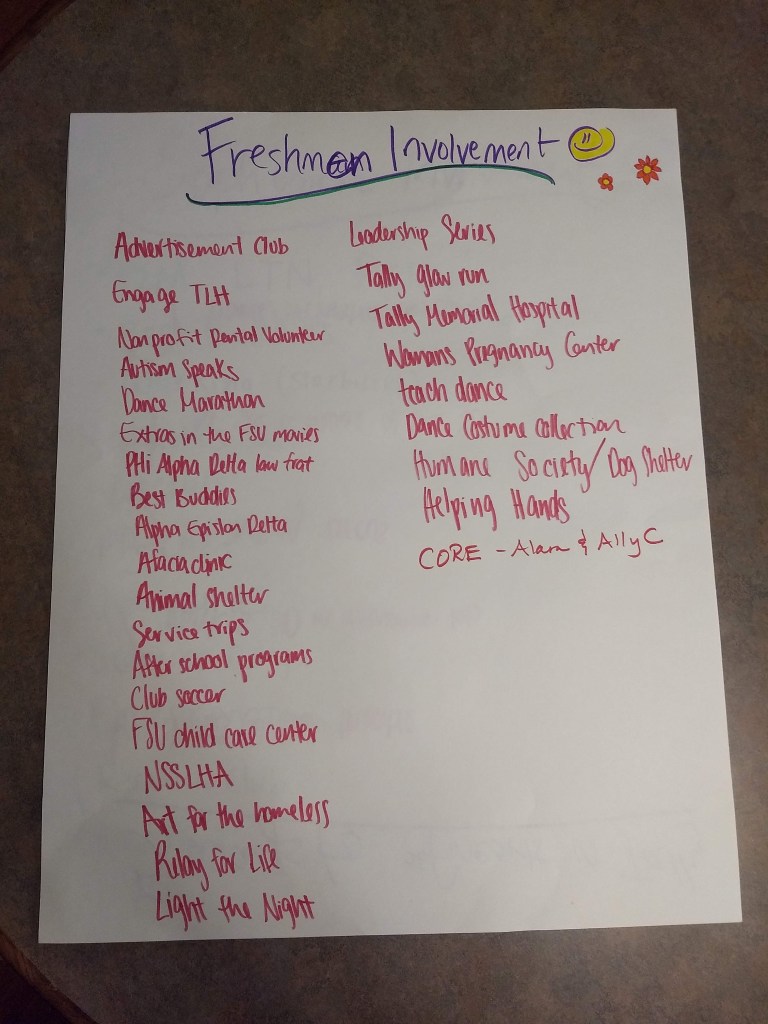 Freshman Involvement
Advertisement Club
Engage TLH
Nonprofit Dental Volunteer
Autism Speaks
Dance Marathon
Extras in the FSU movies
PHi Alpha Delta law frat
Best Buddies
Alpha Epislon Delta
Afacia clinic
Animal shelter
Service trips
After school programs
Club soccer
FSU child care center
NSSLHA
Art for the homeless
Relay for Life
Light the Night
Leadership Series
Tally glow run
Tally Memorial Hospital
Womans Pregnancy Center
teach dance
Dance Costume collection
Humane Society/Dog Shelter
Helping Hands
CORE - Alana & Ally C